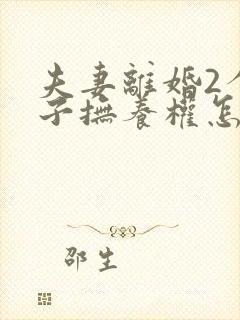 夫妻離婚2
子撫養權怎
邵生